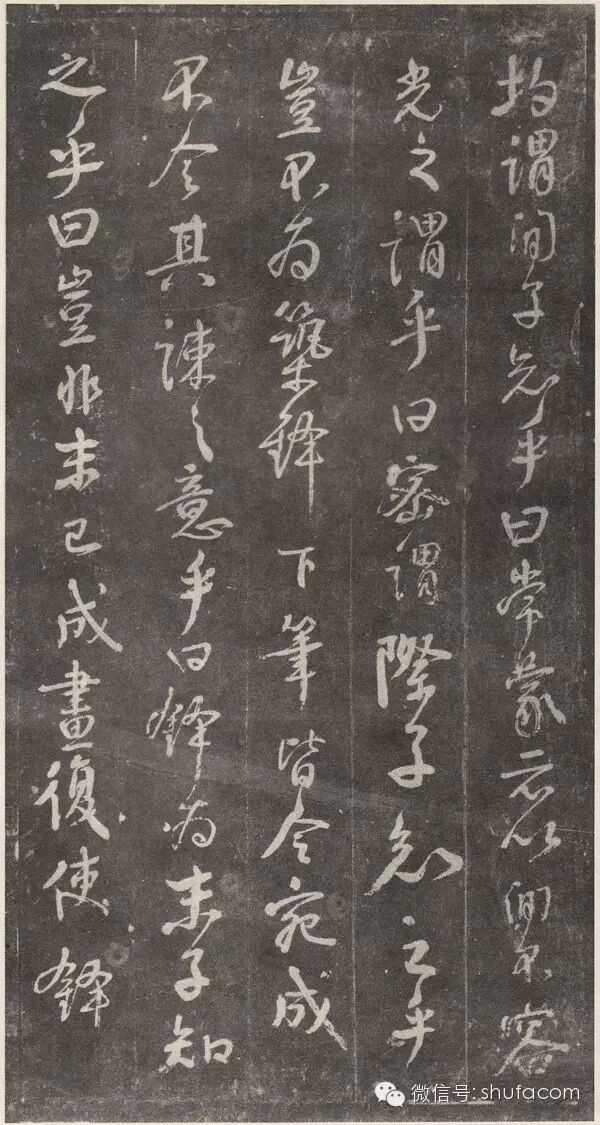 均謂間子知乎曰常蒙示以間不容
光之謂乎曰密謂際子知之乎
豈不為築鋒下筆皆令宛成
不令其疎之意乎曰鋒為末子知
之乎曰豈非末已成畫復使鋒
微信号:shufacom